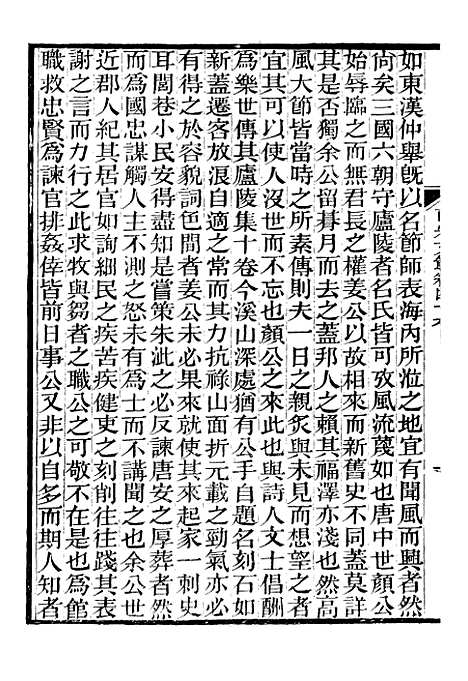 如東漢仲舉旣以名節師表海内所涖之地宜有聞風而興者然
尙矣三國六朝守廬陵者名氏皆可攷風流蔑如也唐中世顏公
始辱臨之而無君長之權姜公以故相來而新舊史不同蓋莫詳
其是否獨余公留朞月而去之蓋邦人之賴其福澤亦淺也然高
風大節皆當時之所素傳則夫一日之親炙與未見而想望之者
宜其可以使人沒而不忘也顏公之來也與詩人文士倡酬
爲樂世傳其廬陵集十卷今溪山深處猶有公手自題名刻石如
新蓋遷客放浪自適之常而其力抗祿山面折元載之勁氣亦必
有得之於容貌詞色間者姜公未必果來就使其來起家一刺史
耳閭巷小民安得盡知是嘗策朱泚之必反諫唐安之厚葬者然
而爲國忠謀觸人主不測之怒未有爲士而不講聞之也余公世
近郡人紀其居官如詢細民之疾苦疾健吏之刻削往往踐其表
謝之言而力行之此求牧與芻者之職公之可敬不在是也爲館
職救忠賢爲諫官排姦倖皆前日事公又非以自多而期人知者